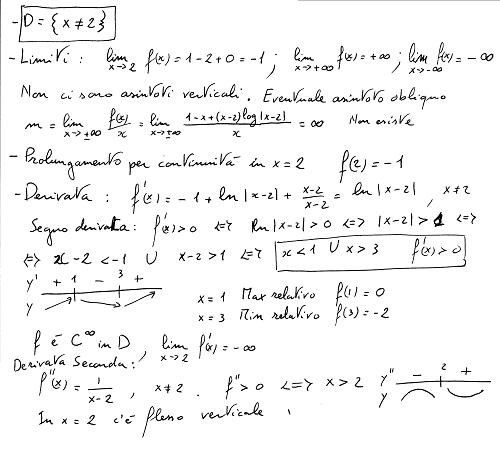 - D = {x ≠ 2}
- Limiti : lim x→2 f(x) = 1-2+0 = -1 ; lim x→+∞ f(x) = +∞ ; lim x→-∞ f(x) = -∞
Non ci sono asintoti verticali. Eventuale asintoto obliquo
m = lim x→±∞ f(x)/x = lim x→±∞ (1-x+(x-2)log|x-2|)/x = ∞ Non esiste
- Prolungamento per continuità in x=2 f(2) = -1
- Derivata : f'(x) = -1 + ln|x-2| + (x-2)/(x-2) = ln|x-2| , x≠2
Segno derivata : f'(x) > 0 <=> ln|x-2| > 0 <=> |x-2| > 1 <=>
<=> x-2 < -1 ∪ x-2 > 1 <=> x < 1 ∪ x > 3 f'(x) > 0
y' + 1 - 3 +
y
x = 1 Max relativo f(1) = 0
x = 3 Min relativo f(3) = -2
f è C^∞ in D , lim x→2 f'(x) = -∞
Derivata Seconda :
f''(x) = 1/(x-2) , x≠2 . f'' > 0 <=> x > 2 y'' - 2 +
y
In x = 2 c'è flesso verticale